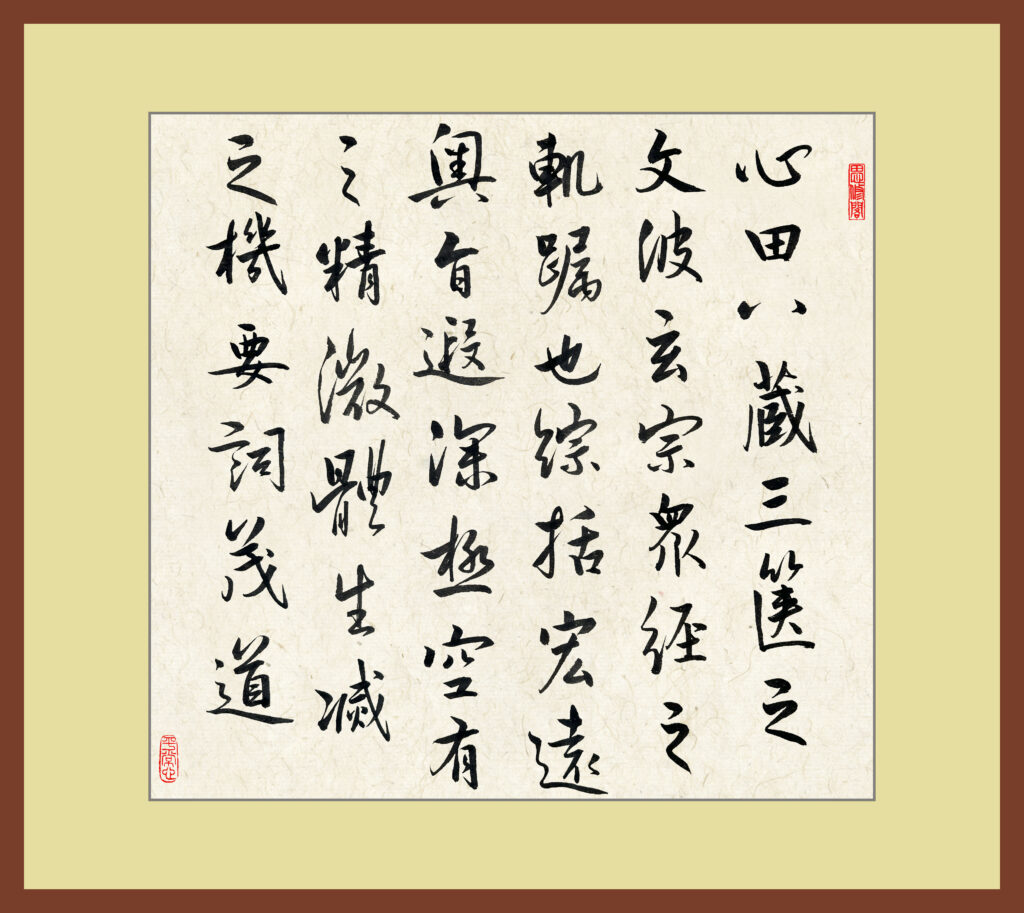 思修閣
心田八藏三篋之
文波玄宗眾經之
軌躅也綜括宏遠
奧旨遐深極空有
之精微體生滅
之機要詞茂道
平常心